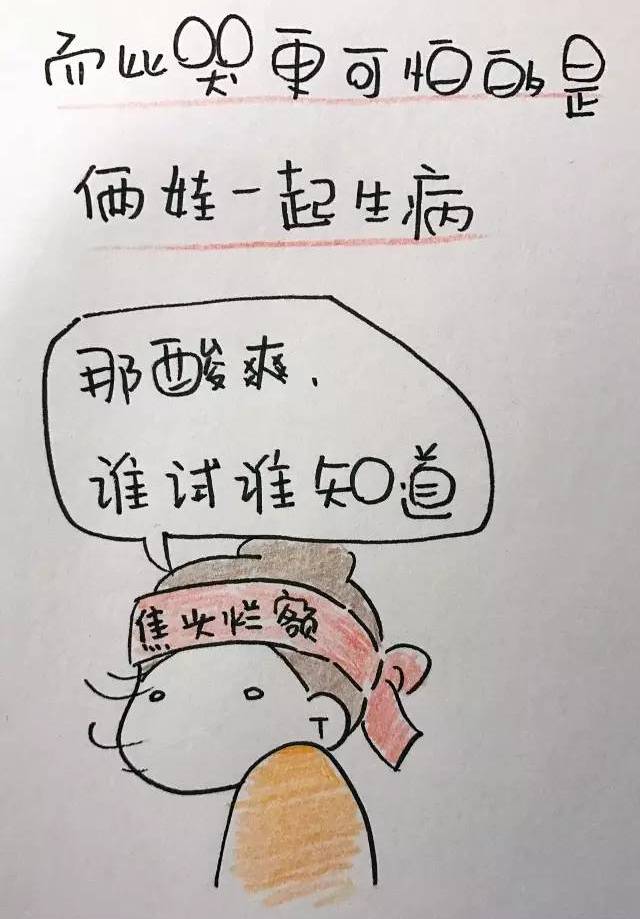 而比哭更可怕的是
俩娃一起生病
那酸爽.
谁试谁知道
焦头烂额